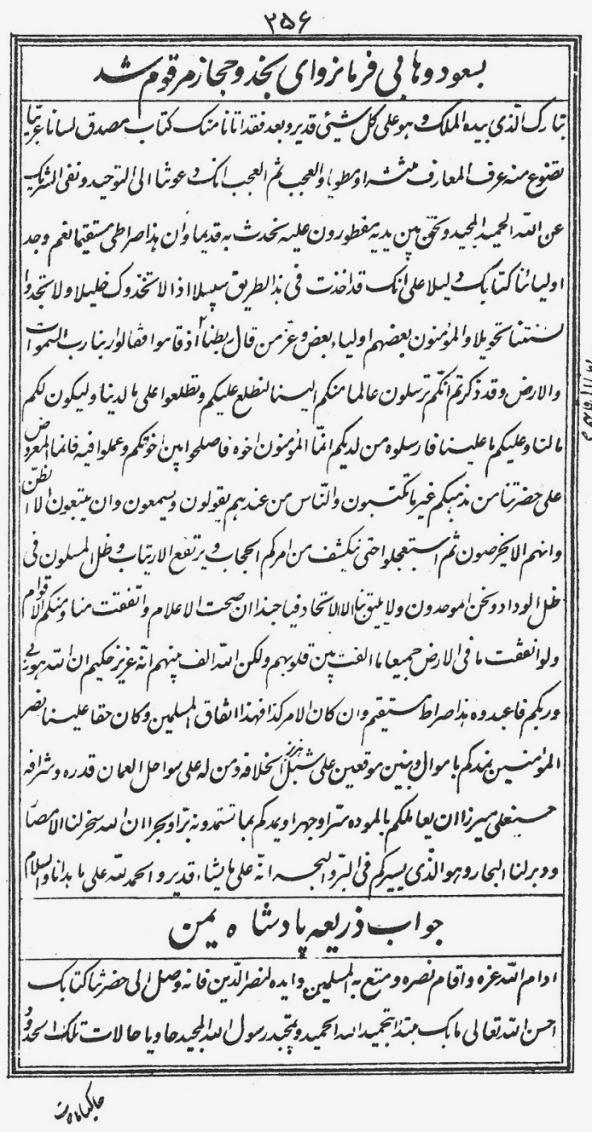 ۲۵۶
بسعود وهابی فرمانروای نجد و حجاز مرقوم شد
تبارک الذی بیده الملک و هو علی کل شیئی قدیر و بعد فقد اتانا منک کتاب مصدق لسانا عربیا
تضوع منه عرف المعارف منشرا و مطویا و العجب ثم العجب انک دعوتنا الی التوحید و نفی الشریک
عن الله الحمید المجید و نحن بین یدیه مفطورون علیه نحدث به قدیما و ان هذا صراطی مستقیما نعم وجد
اولیائنا کتابک دلیلا علی انک قد اخذت فی هذا الطریق سبیلا اذا لاتخذوک خلیلا ولا تجدوا
لسنتنا تحویلا و المؤمنون بعضهم اولیاء بعض و عز من قال ربطنا اذ قاموا فقالوا ربنا رب السموات
والارض و قد ذکرتم انکم ترسلون عالما منکم الینا لنطلع علیکم و تطلعوا علی ما لدینا و لیکون لکم
مالنا و علیکم ما علینا فارسلوه من لدیکم انما المؤمنون اخوه فاصلحوا بین اخوتکم و عملوا فیه فانما المعروض
علی حضرتنا من مذهبکم غیر ما تکتبون و الناس من عندهم یقولون و یسمعون و ان یتبعون الا الظن
و انهم الا یخرصون ثم استعجلوا حتی نکشف من امرکم الحجاب و یرتفع الارتیاب و ظل المسلمون فی
ظل الوداد و نحن الموحدون و لا یلیق بنا الا الاتحاد فیا حبذا ان صحت الاعلام و اتفقت منا و منکم الاقوام
ولو انفقت ما فی الارض جمیعا ما الفت بین قلوبهم ولکن الله الف بینهم انه عزیز حکیم ان الله هو ربی
و ربکم فاعبدوه هذا صراط مستقیم و ان کان الامر کذا فهذا اتفاق المسلمین و کان حقا علینا نصر
المؤمنین نمدکم باموال و بنین موقعین علی شبل الخلافه و من له علی سواحل العمان قدره و شرافه
حسنعلی میرزا ان یعاملکم بالموده سرا و جهرا و یمدکم بما تستمدونه برا و بحرا ان الله سخر لنا الامصار
و دبر لنا البحار و هو الذی یسیرکم فی البر و البحر انه علی ما یشاء قدیر و الحمد لله علی ما هدانا و السلام
جواب ذریعه پادشاه یمن
ادام الله عزه و اقام نصره و متع به المسلمین و ایده لنصر الدین فانه وصل الی حضرتنا کتابک
احسن الله تعالی مآبک مبتدا بتحمید الله الحمید و بتمجید رسول الله المجید حاویا حالات تلک الحدود